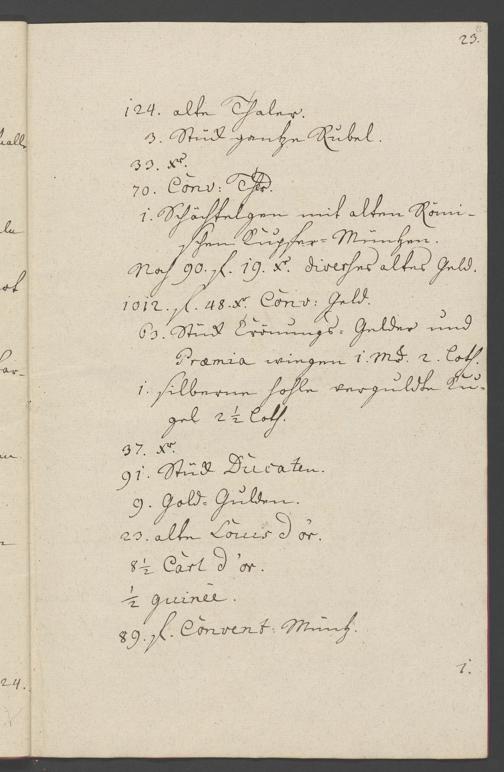 23.
124. alte Thaler.
3. Stück gantze Rubel.
33. xr.
70. Conv: Thlr.
1. Schächtelgen mit alten Römi-
schen Kupfer-Müntzen.
Noch 90. fl. 19. xr. diverses altes Geld.
1012. fl. 48. xr. Conv: Geld.
63. Stück Crönungs-Gelder und
Præmia wiegen 1. Mk. 2. Loth.
1. silberne hohle verguldte Ku-
gel 2 1/2 Loth.
37. xr.
91. Stück Ducaten.
9. Gold-Gulden.
23. alte Louis d'or.
8 1/2 Carl d'or.
1/2 guinée.
89. fl. Convent: Müntz.
1.
24.